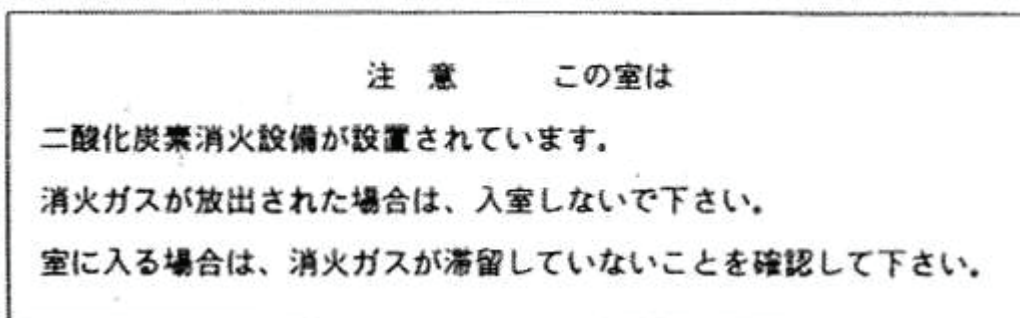 注　意　　この室は
二酸化炭素消火設備が設置されています。
消火ガスが放出された場合は、入室しないで下さい。
室に入る場合は、消火ガスが滞留していないことを確認して下さい。